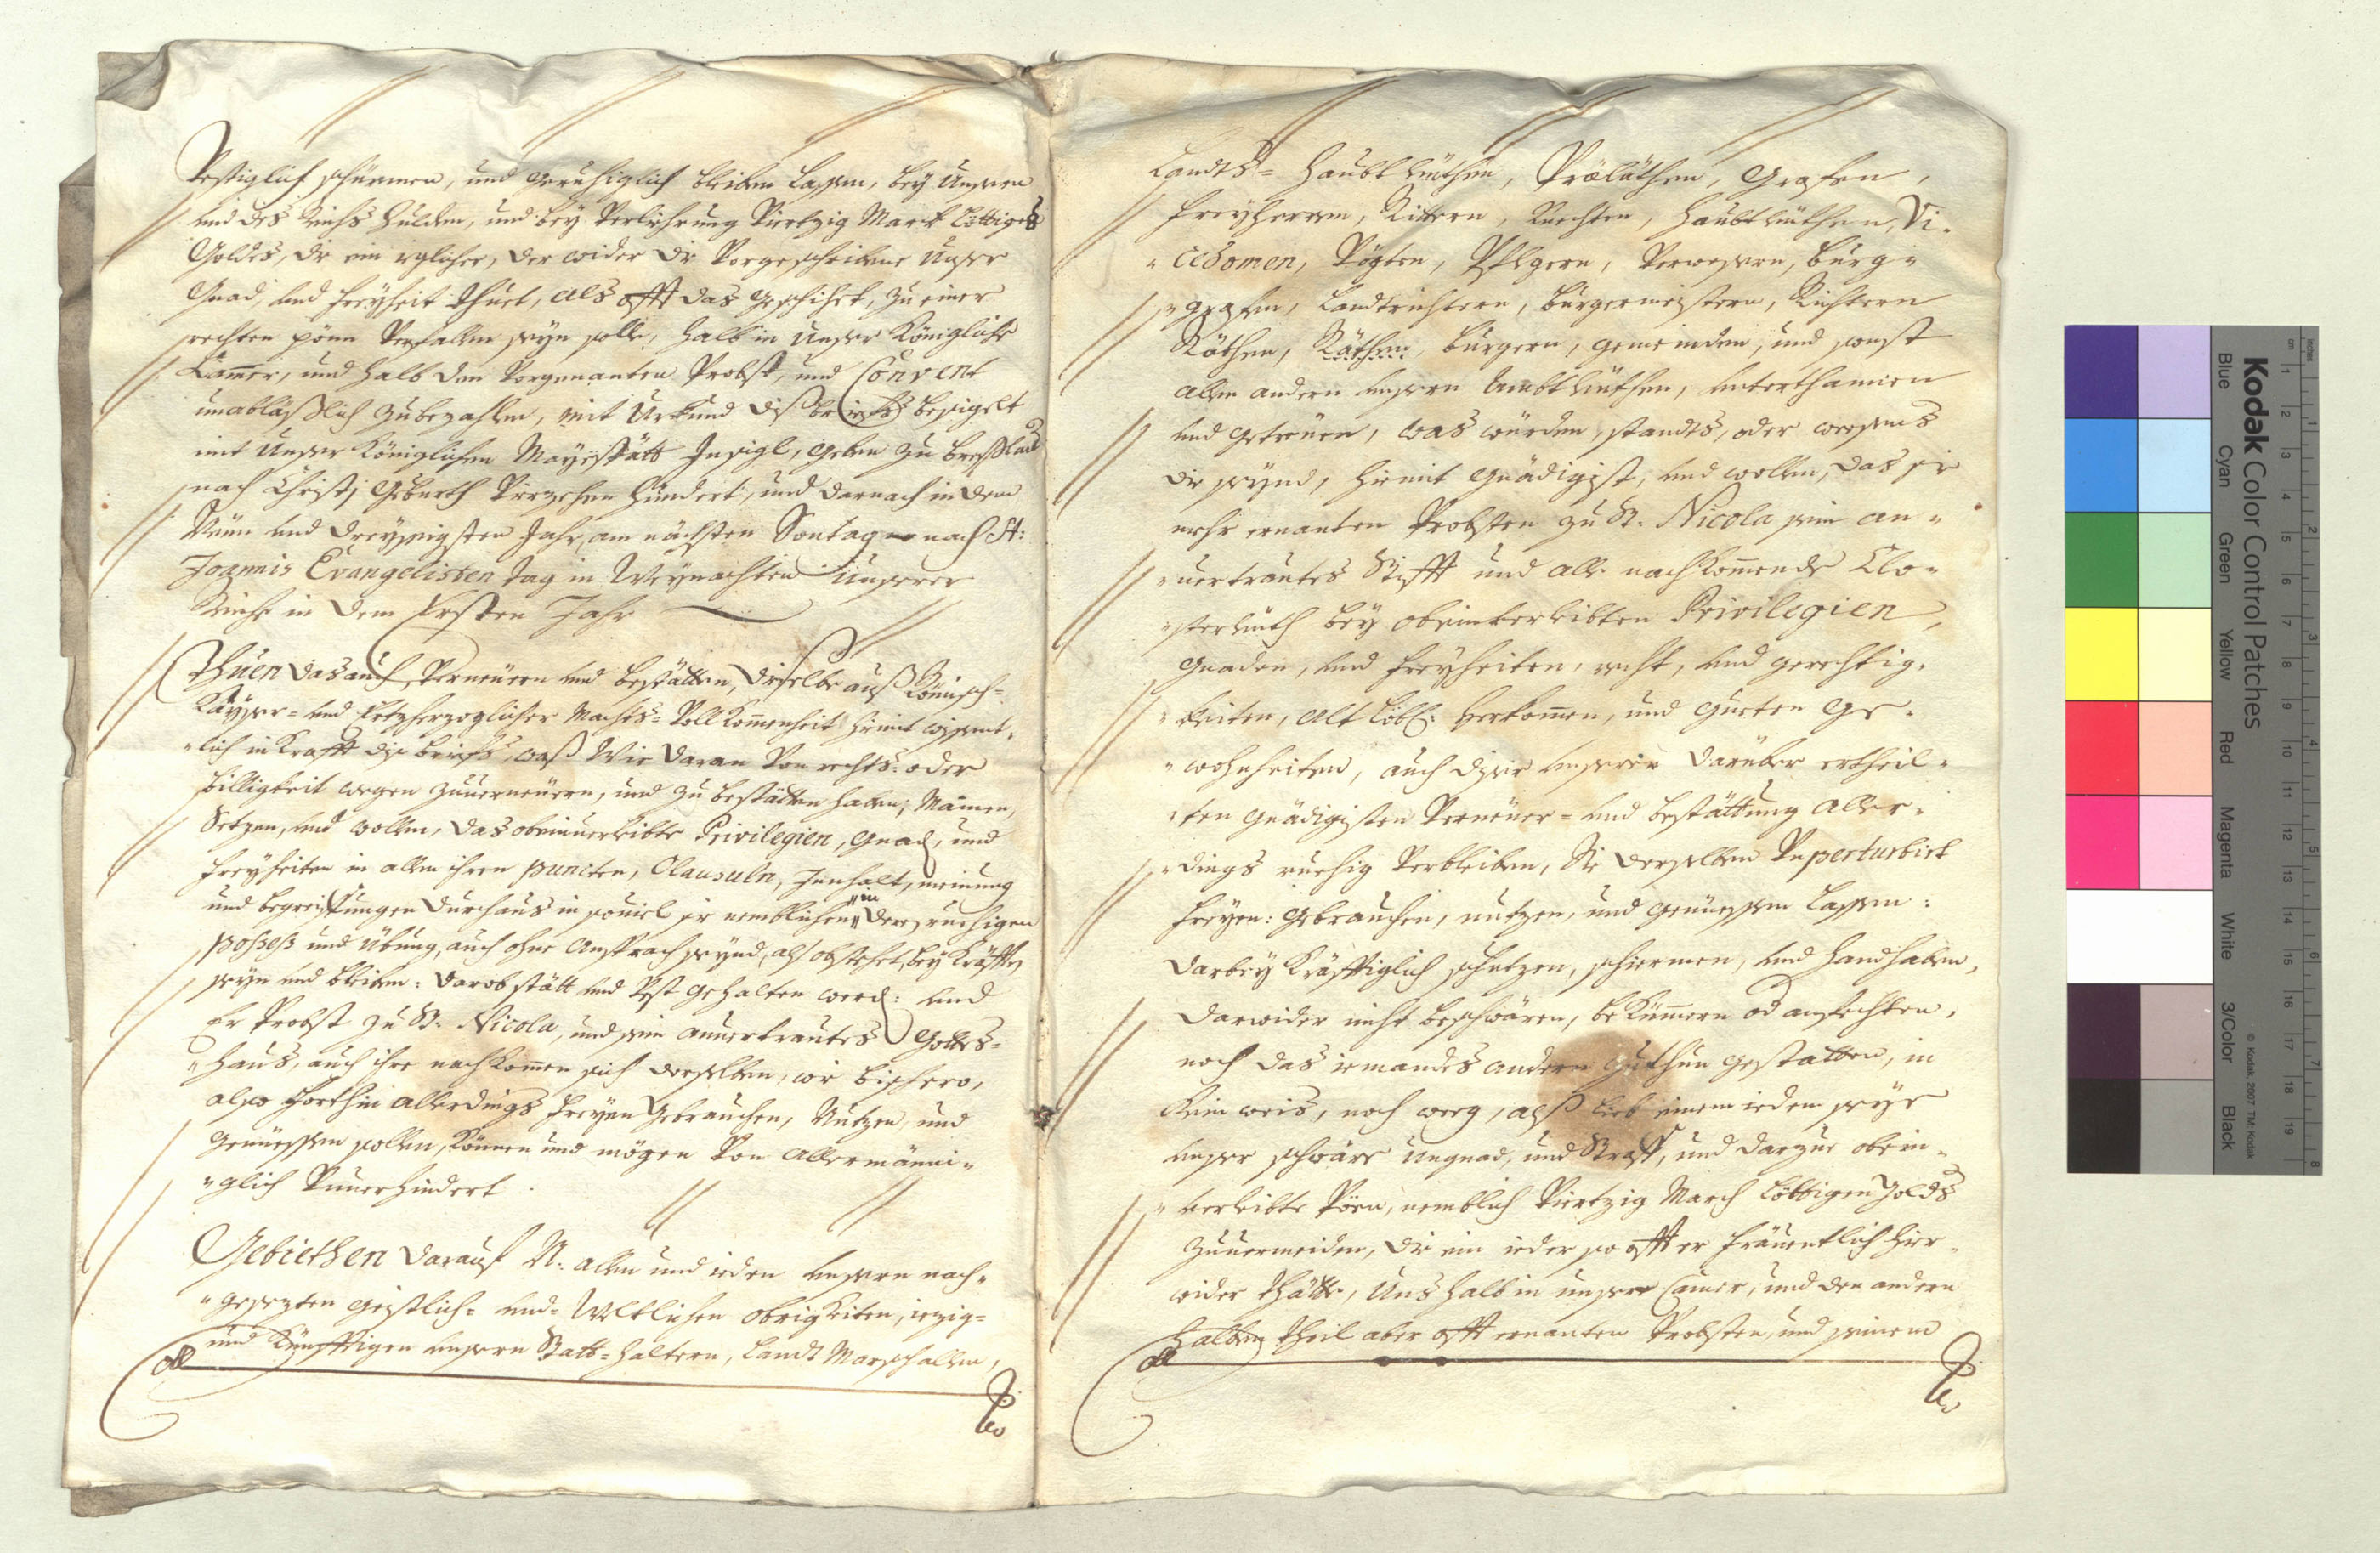 Vestiglich schürmen, und geruhiglich bleiben lassen, bey Unsern
und des Reichs Hulden, und bey Verliehrung Viertzig Marck Löttiges
Goldes, die ein iglicher, der wider die Vorgeschribene Unser
Gnad, und Freyheit thuet, als offt das geschihet, zu einer
rechten pönn Verfallen seyn solle, halb in Unser Königliche
Cammer, und halb den Vorgenanten Probst, und Convent
unabläßlich zubezahlen, mit Urkund diß briefs besigelt
mit Unser Königlichen Mayestätt Insigl, geben zu Breßlau
nach Christj Geburth Vierzehen hundert, und darnach in dem
Neün und dreyssigsten Jahr, am nächsten Sontag nach St:
Joannis Evangelisten tag in Weynachten Unserer
Reiche in dem Ersten Jahr
Thuen das auch, Verneüern und bestätten, dieselbe auß Römisch-
Kayser- und Ertzherzoglicher Machts-Vollkommenheit hiemit wissent-
"lich in Krafft diß briefs, waß Wir daran Von rechts: oder
billigkeit wegen zuuerneüern, und zu bestätten haben; Mainen,
Setzen, und wollen, das obeinuerleibte Privilegien, Gnad, und
Freyheiten in allen ihren puncten, Clausuln, Innhalt, meinung
und begreiffungen durchaus in souiel sie nemblichen "in" deren ruehigen
possess und Übung, auch ohne Ansprach seynd, als obstehet, bey Kräfften
seyn und bleiben: darob stätt und Vest gehalten werd: und
Er Probst zu St. Nicola, und sein anuertrautes Gottes-
"haus, auch ihre nachkommen sich derselben, wie bishero,
also forthin allerdings Freyen Gebrauchen, Nutzen, und
Genüessen sollen, können und mögen Von Allermänni-
"glich Vnuerhindert.
Gebiethen darauf N. allen und ieden unsern nach-
"gesezten geistlich- und- Weltlichen obrigkeiten, iezig-
und Künfftigen unsern Statt-haltern, Landt Marschallen,
Landts- Haubtleüthen, Prälathen, Grafen,
Freyherren, Rittern, Knechten, Haubtleüthen, Vi-
"cedomen, Vögten, Pflegern, Verwesern, Burg-
"grafen, Landtrichtern, Bürgermeistern, Richtern
Räthen, Räthen, burgern, gemeinden, und sonst
allen andern unsern Ambtleüthen, unterthannen
und getreüen, was würden, standts, oder weesens
die seynd, hiemit gnädigist, und wollen, das sie
mehr ernanten Probsten zu St. Nicola sein an-
"uertrautes Stifft und alle nachkommende Clo-
"sterleüth bey obeinverleibten Privilegien,
Gnaden, und Freyheiten, recht, und gerechtig-
"keiten, alt löbl: herkommen, und gueten ge-
"wohnheiten, auch diser unserer darüber ertheil-
"ten gnädigisten Verneüer- und bestättung aller-
"dings ruehig Verbleiben, Sie derselben Vnperturbirt
Freyen: gebrauchen, nutzen, und genüessen lassen:
darbey kräfftiglich schutzen, schiermen, und handhaben,
darwider nicht beschwären, bekümmern od anfechten,
noch das iemandes andern zuthun gestatten, in
kein weis, noch weeg, alß lieb einem ieden seye
unser schwäre ungnad, und Straff, und darzue obein-
"verleibte Pöen, nemblich Viertzig March Löttigen Golds
zuuermeiden, die ein ieder so offt er fräuentlich hier-
wider thätte, Uns halb in unsere Camer, und den andern
halben theil aber offt ernanten Probsten, und seinem
Kodak Color Control Patches
Blue
Cyan
Green
Yellow
Red
Magenta
White
3/Color
Black
© Kodak, 2007 TM: Kodak
cm
inches
1 2 3 4 5 6 7 8 9 10 11 12 13 14 15 16 17 18 19
1 2 3 4 5 6 7 8